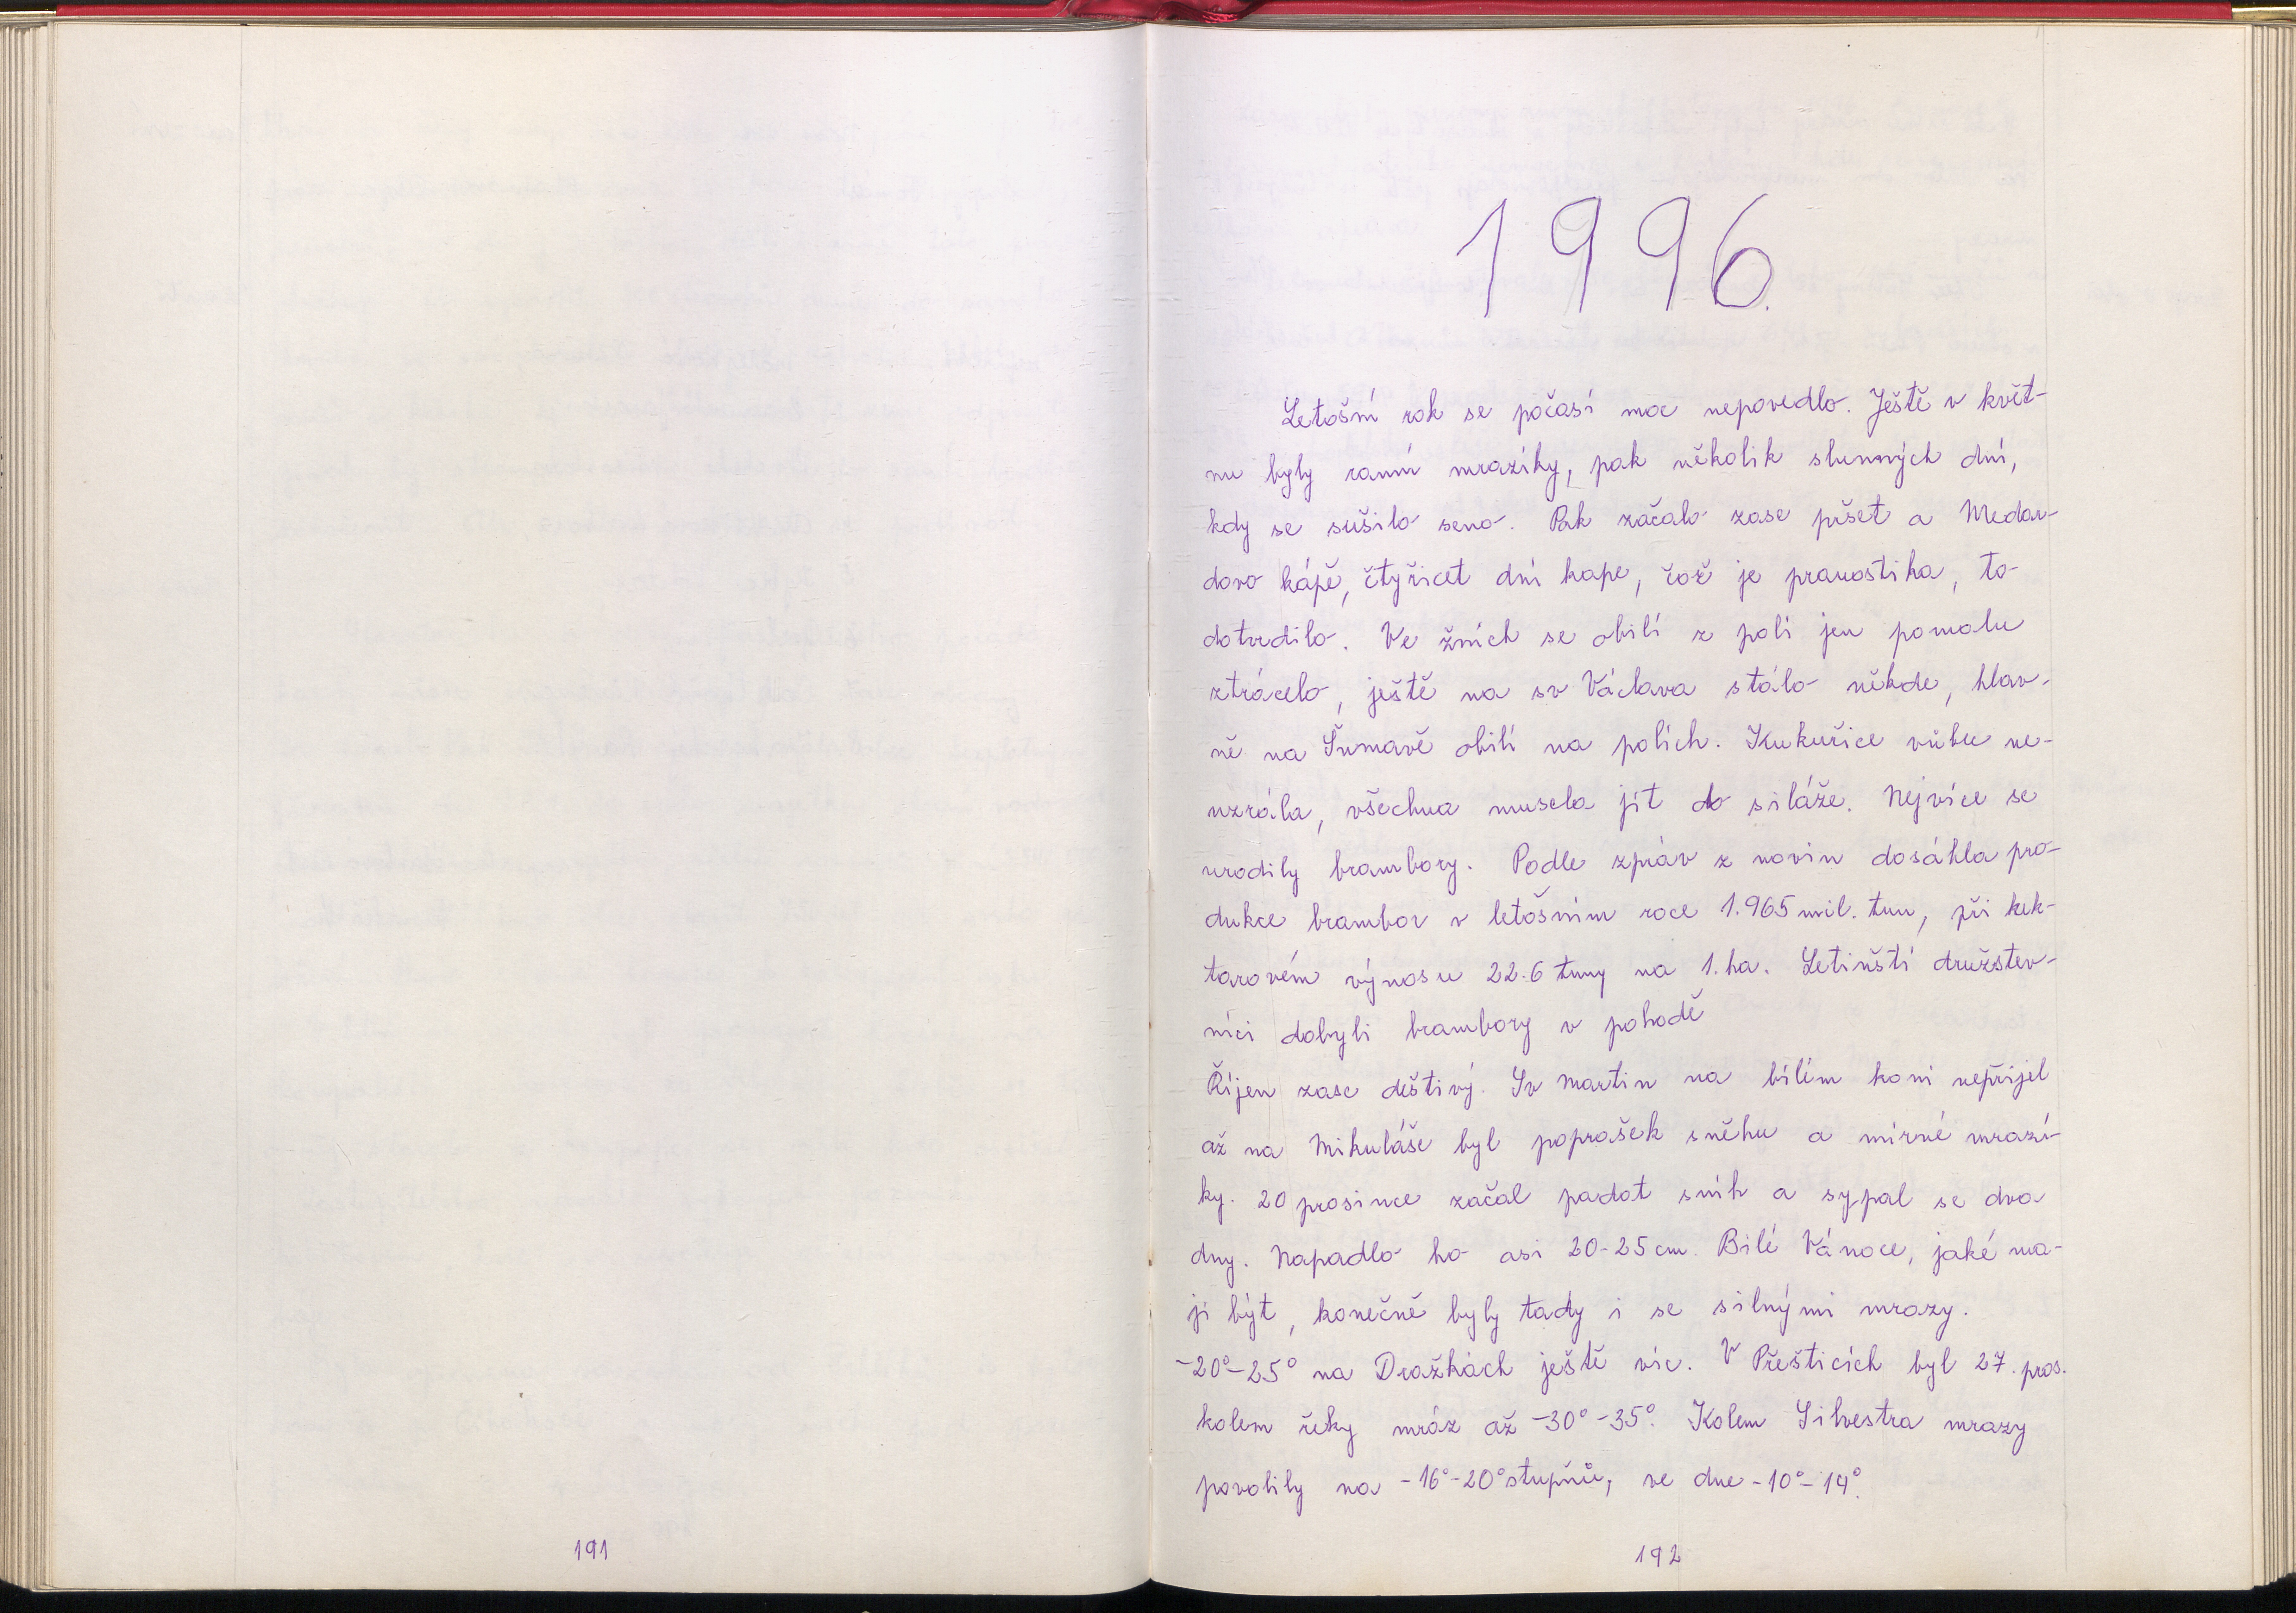 191
1996.
Letošní rok se počasí moc nepovedlo. Ještě v květ-
nu byly ranní mrazíky, pak několik slunných dní,
kdy se sušilo seno. Pak začalo zase pršet a Medar-
dovo kápě, čtyřicet dní kape, což je pranostika, to
dotvrdilo. Ve žních se obilí z polí jen pomalu
ztrácelo, ještě na sv Václava stálo někde, hlav-
ně na Šumavě obilí na polích. Kukuřice vůbec ne-
uzrála, všechna musela jít do siláže. Nejvíce se
urodily brambory. Podle zpráv z novin dosáhla pro-
dukce brambor v letošním roce 1.965 mil. tun, při hek-
tarovém výnosu 22.6 tuny na 1.ha. Letinští družstev-
níci dobyli brambory v pohodě
Říjen zase deštivý. Sv Martin na bílém koni nepřijel
až na Mikuláše byl poprašek sněhu a mírné mrazí-
ky. 20 prosince začal padat sníh a sypal se dva
dny. Napadlo ho asi 20-25 cm. Bílé Vánoce, jaké ma-
jí být, konečně byly tady i se silnými mrazy.
-20°-25° na Dražkách ještě víc. V Přešticích byl 27. pros.
kolem řeky mráz až -30°-35°. Kolem Silvestra mrazy
povolily na -16°-20° stupňů, ve dne -10°-14°.
192